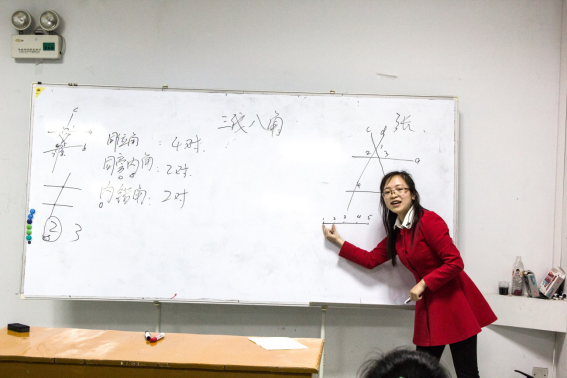 三线八角
张
同位角：4对.
同旁内角：2对.
内错角：2对
c
b
2 3
c d
2 1 3
a
4
1 2 3 4 5